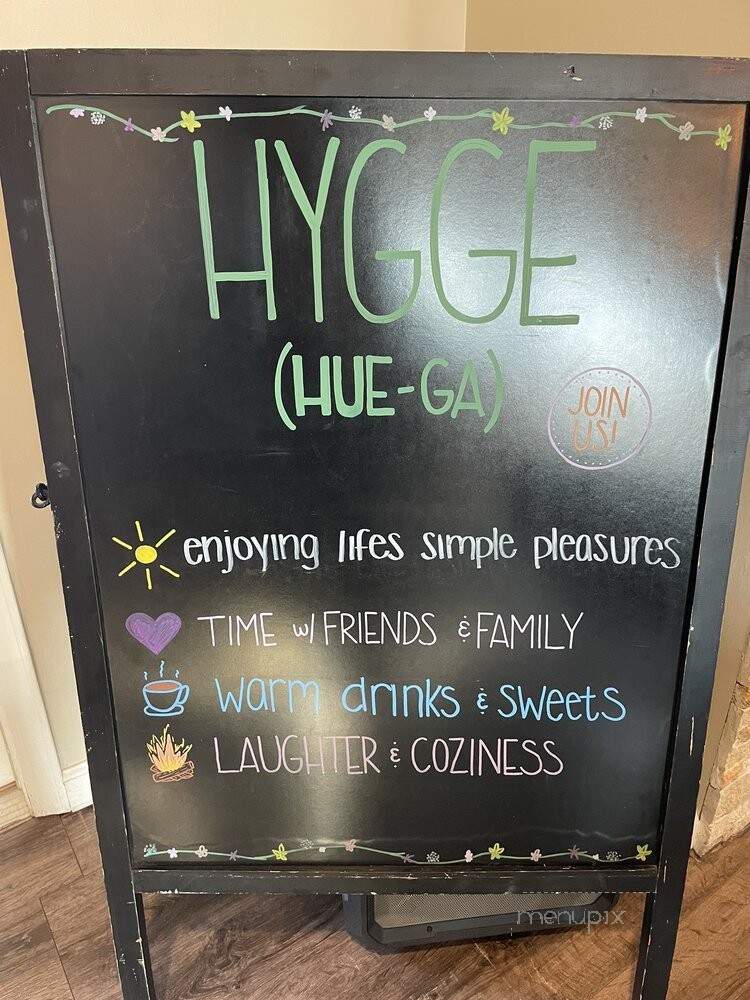 HYGGE
(HUE-GA)
JOIN
US!
enjoying lifes simple pleasures
TIME w/ FRIENDS & FAMILY
warm drinks & sweets
LAUGHTER & COZINESS
menupix